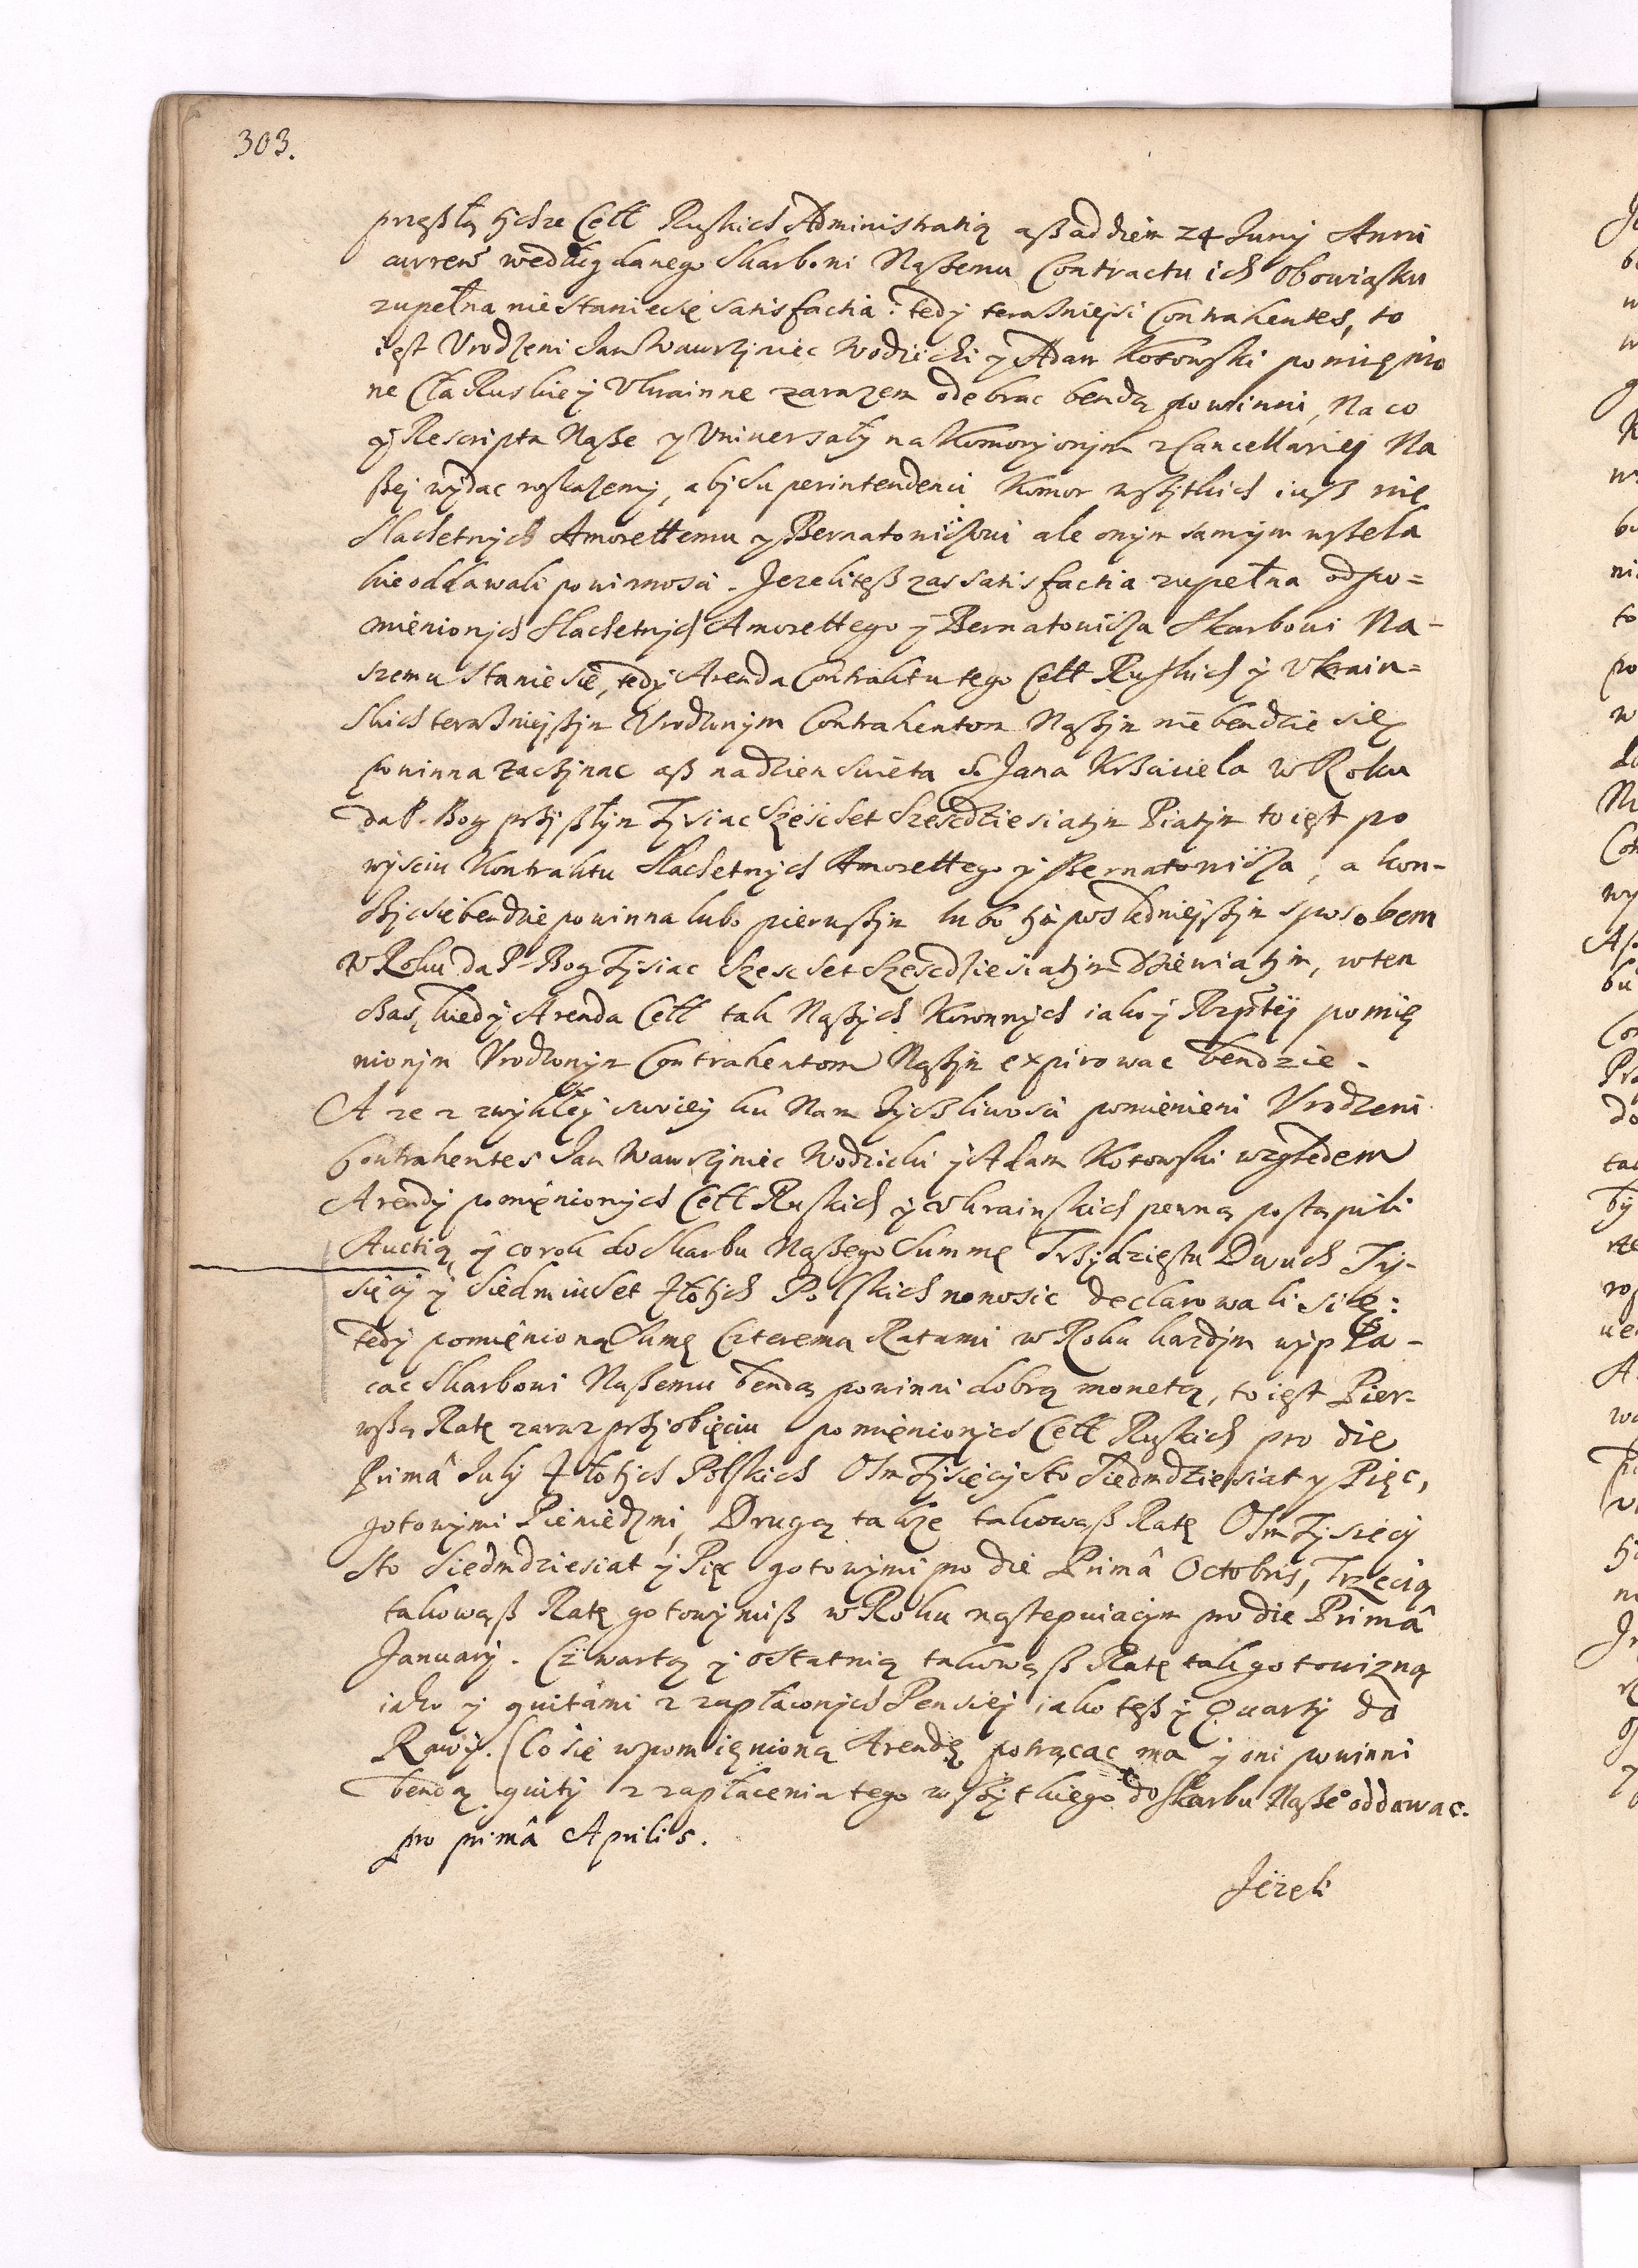 303.
przeßłą tychze Cełł Ruskich Administratią aß ad diem 24 Juny Anni
currens według danego Skarboni Naßemu Contractu ich Obowiąsku
zupełna nie staniecie satisfactia: tedy terasnieysi Contrahentes, to
iest Vrodzeni Jan Wawrzyniec Wodzicki y Adam Kotowski pomięnio
ne Cła Ruskie y Vkrainne zarazem odebrac bendą powinni, Na co
y Rescripta Naße y Vniuersały na Komory onym z Cancellariey Na
ßey wydac roskazemy, aby Superintendenci Komor wßytkich iuß nie
Slachetnych Amorettemu y Bernatowiczowi ale onym samym wßela
kie oddawali powinnosci. Jezeli teß zas satisfactia zupełna od po=
mienionych Slachetnych Amorettego y Bernatowicza Skarbowi Na-
szemu stanie sie, tedy Arenda Contraktu tego Cełł Ruskich y Vkrain=
skich teraßnieyßym Vrodzonym Contrahentom Naßym nie bendzie się
powinna zaczynac aß na dzien swieta S. Jana Krzciciela w Roku
da P. Bog przyßłym Tysiac Szesc Set Szescdziesiatym Piatym to iest po
wysciu Kontraktu Slachetnych Amorettego y Bernatowicza, a kon-
czyc sie bendzie powinna lubo pierwßym lubo tym poslednieyßym sposobem
w Roku da P. Bog Tysiac Szesc Set Szescdziesiatym Dziewiatym, w ten
czas, kiedy Arenda Cełł tak Naßych Koronnych iako y Rzptey pomię
nionym Vrodzonym Contrahentom Naßym expirowac bendzie.
A ze z zwykłey swoiey ku Nam zyczliwosci pomienieni Vrodzeni
Contrahentes Jan Wawrzyniec Wodzicki y Adam Kotowski względem
Arendy pomięnionych Cełł Ruskich y Vkrainskich pewną postąpili
Auctią, y co rok do Skarbu Naßego Summę Trzydziestu Dwuch Ty-
sięcy y Siedmiuset Złotych Polskich wnosic declarowali się:
tedy pomięnioną Sumę Czterema Ratami w Roku kazdym wypła-
cac Skarbowi Naßemu bendą powinni dobrą monetą, to iest Pier-
wßą Ratę zaraz przy obięciu pomięnionych Cełł Ruskich pro die
Primâ July Złotych Polskich Osm Tysięcy Sto Siedmdziesiat y Pięc,
gotowymi Pieniedzmi, Drugą takze takowąß Ratę Osm Tysięcy
Sto Siedmdziesiat y Pięc gotowymi pro die Primâ Octobris, Trzecią
takowąß Ratę gotowymiß w Roku nastepuiącym pro die Primâ
January. Czwartą y ostatnią takowąß Ratę tak gotowizną
iako y quitami z zapłaconych Pensiey iako teß y Quarty do
Rawy. (Co sie w pomięnioną Arendę potrącac ma y oni powinni
bendą quity z zapłacenia tego wßytkiego do Skarbu Naße° oddawac.
pro primâ Aprilis.
Jezeli